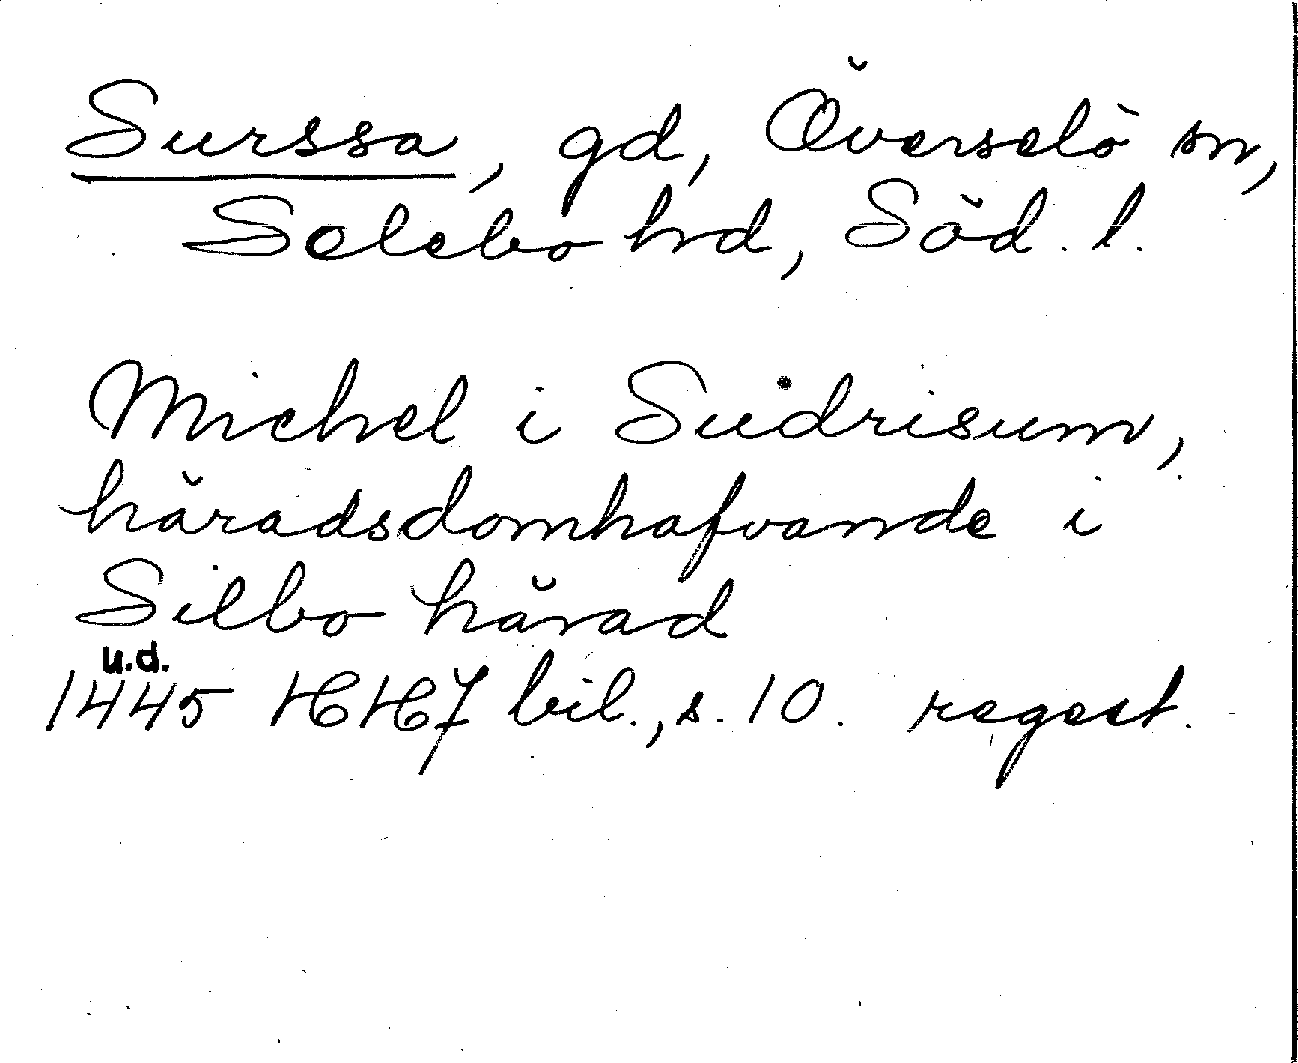 Surssa, gd, Överselö sn,
Selebo hrd, Söd. l.
Michel i Sudrisum,
häradsdomhafvande i
Silbo härad
u.d.
1445 HH7 bil., s. 10. regest.